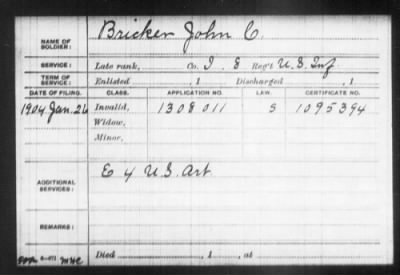 NAME OF SOLDIER: Bricker John C.
SERVICE: Late rank, Co. I, 8 Reg't U.S. Inf
TERM OF SERVICE: Enlisted , 1 Discharged , 1
DATE OF FILING. CLASS. APPLICATION NO. LAW. CERTIFICATE NO.
1904 Jan. 26 Invalid, 1308011 S 1095394
Widow,
Minor,
ADDITIONAL SERVICES: E 4 U.S. Art.
REMARKS:
Died , 1 , at